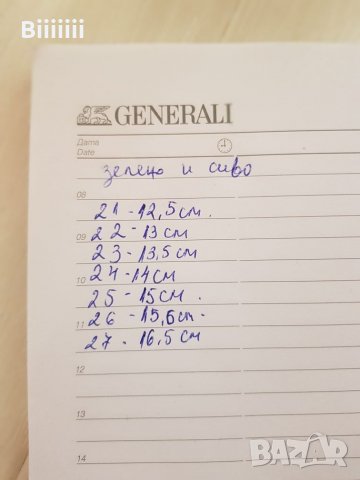 Biiiiii
GENERALI
Дата
Date
зелено и сиво
08
21 - 12,5 см.
09
22 - 13 см
23 - 13,5 см
10
24 - 14 см
25 - 15 см.
11
26 - 15,6 см.
27 - 16,5 см
12
13
14
BAZAR